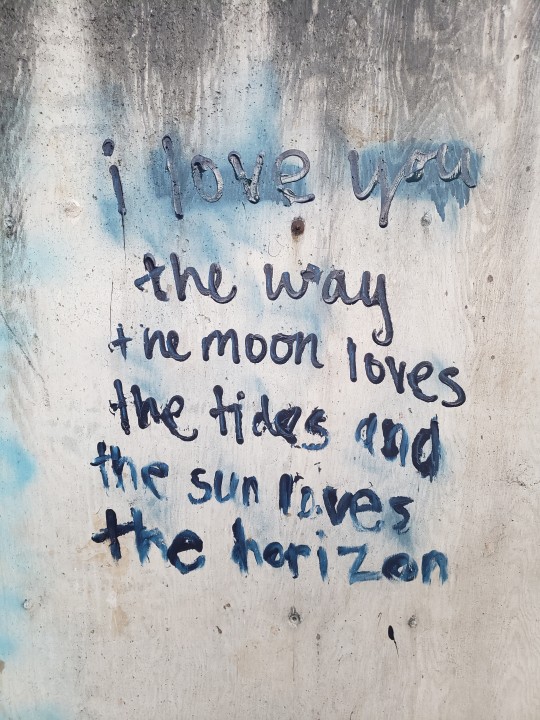 i love you
the way
the moon loves
the tides and
the sun loves
the horizon